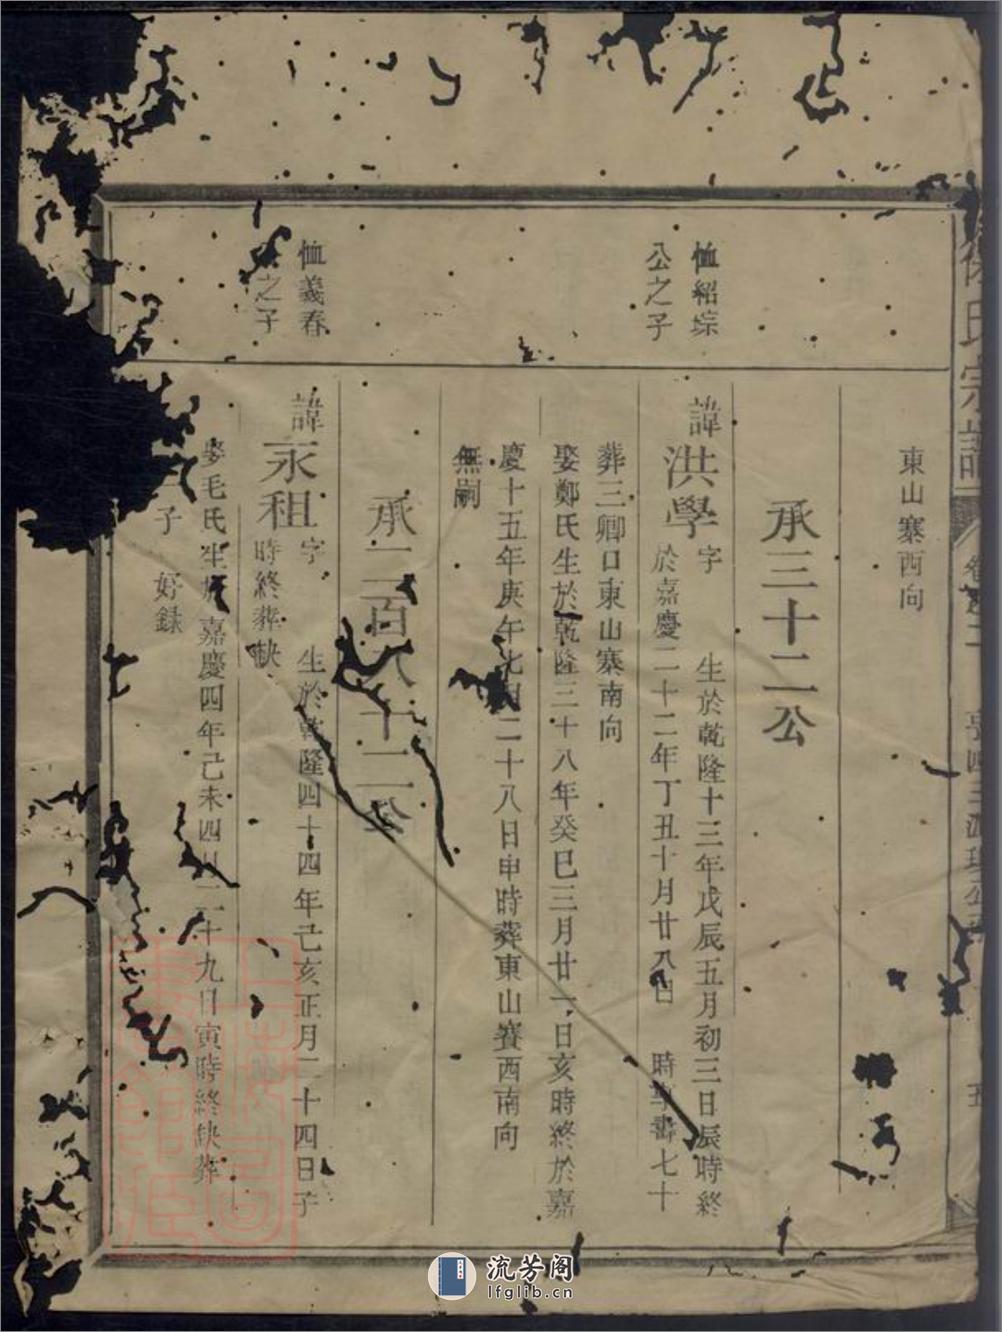 氏宗譜
東山寨西向
承三十二公
恤紹琮
公之子
諱洪學字 生於乾隆十三年戊辰五月初三日辰時終
於嘉慶二十二年丁丑十月廿八日 時享壽七十
葬三卿口東山寨南向
娶鄭氏生於乾隆三十八年癸巳三月廿一日亥時終於嘉
慶十五年庚午七月二十八日申時葬東山賽西南向
無嗣
承二百八十二公
恤義春
之子
諱永祖字 生於乾隆四十四年己亥正月二十四日子
時終葬缺
娶毛氏生於嘉慶四年己未四月二十九日寅時終缺葬
子 好録
流芳阁
lfglib.cn